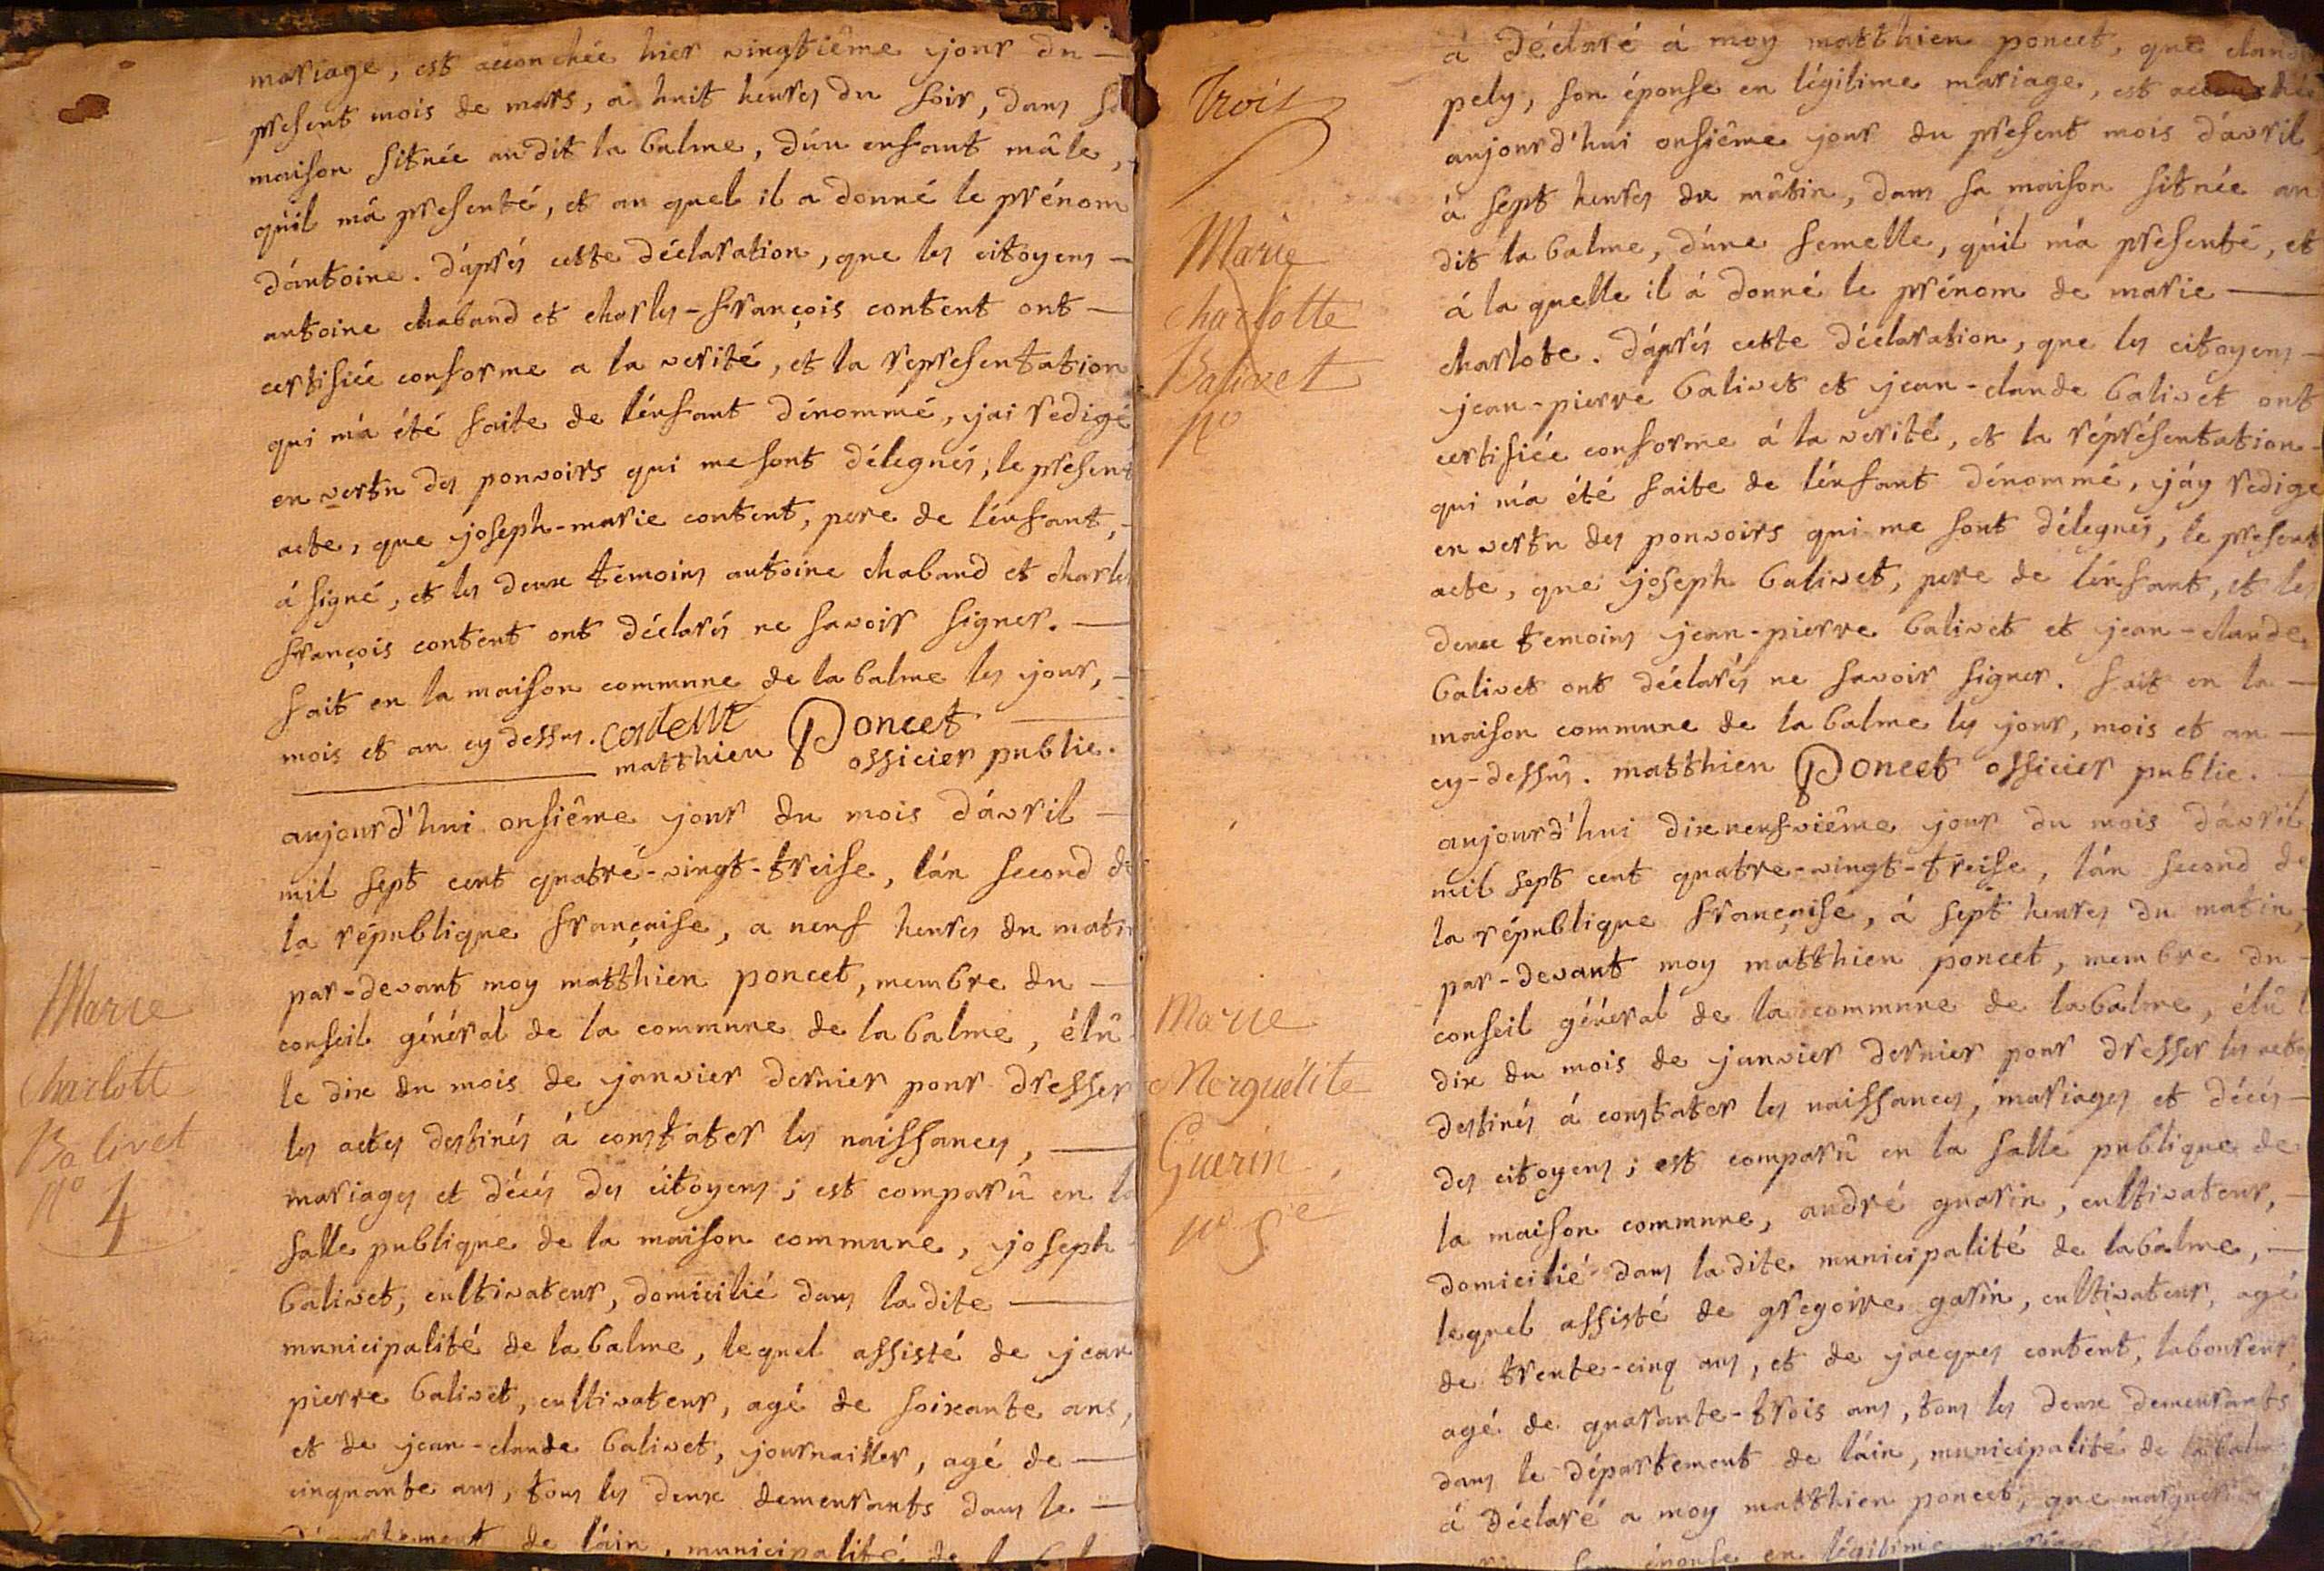 mariage, est accouchée hier vingtiême jour du
present mois de mars, a huit heures du soir, dans sa
maison située audit la balme, dún enfant mâle,
qúil má presenté, et au quel il a donné le prénom
dántoine. dáprés cette déclaration, que les citoyens
antoine chabaud et charles-françois content ont
certifiée conforme a la verité, et la representation
qui má été faite de lénfant dénommé, jai redigé
en vertu des pouvoirs qui me sont délegués, le present
acte, que joseph-marie content, pere de lénfant,
á signé, et les deux temoins antoine chabaud et charles
françois content ont déclarés ne savoir signer.
fait en la maison commune de la balme les jour,
mois et an cy dessus. content
matthieu Poncet officier public.
aujourd'hui onsiême jour du mois dávril
mil sept cent quatre-vingt-treise, lán second de
la république française, a neuf heures du matin
par-devant moy matthieu poncet, membre du
conseil général de la commune de la balme, élû
le dix du mois de janvier dernier pour dresser
les actes destinés á constater les naissances,
mariages et décés des citoyens; est comparû en la
salle publique de la maison commune, joseph
balivet, cultivateur, domicilié dans la dite
municipalité de la balme, lequel assisté de jean
pierre balivet, cultivateur, agé de soixante ans,
et de jean-claude balivet, journailler, agé de
cinquante ans, tous les deux demeurants dans le
département de láin, municipalité de la balme
Marie
Charlott
Balivet
nº 4
Trois
Marie
Charlotte
Balivet
nº
á déclaré á moy matthieu poncet, que claud
pely, son épouse en légitime mariage, est accouchée
aujourd'hui onsiême jour du present mois dávril
á sept heures du mâtin, dans sa maison située au
dit la balme, dúne femelle, qúil má presenté, et
á la quelle il á donné le prénom de marie
charlote. dáprés cette déclaration, que les citoyens
jean-pierre balivet et jean-claude balivet ont
certifiée conforme á la verité, et la réprésentation
qui má été faite de lénfant dénommé, jáy redigé
en vertu des pouvoirs qui me sont délegués, le present
acte, que joseph balivet, pere de lénfant, et les
deux temoins jean-pierre balivet et jean-claude
balivet ont déclarés ne savoir signer. fait en la
maison commune de la balme les jour, mois et an
cy-dessûs. matthieu Poncet officier public.
aujourd'hui dixneufviême jour du mois dávril
mil sept cent quatre-vingt-treise, lán second de
la république française, á sept heures du matin,
par-devant moy matthieu poncet, membre du
conseil général de la commune de la balme, élû l
dix du mois de janvier dernier pour dresser les actes
destinés á constater les naissances, mariages et décés
des citoyens; est comparû en la salle publique de
la maison commune, andré guarin, cultivateur,
domicilié dans la dite municipalité de la balme,
lequel assisté de gregoire garin, cultivateur, agé
de trente-cinq ans, et de jacques content, laboureur,
agé de quarante-trois ans, tous les deux demeurants
dans le département de láin, municipalité de la balme
á déclaré a moy matthieu poncet, que marguerite
son épouse en légitime mariage
Marie
Merguélite
Guerin
nº 5e